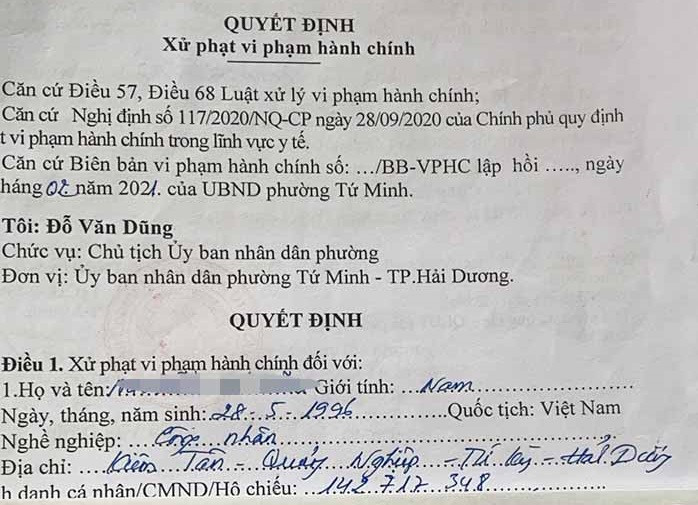 QUYẾT ĐỊNH
Xử phạt vi phạm hành chính
Căn cứ Điều 57, Điều 68 Luật xử lý vi phạm hành chính;
Căn cứ Nghị định số 117/2020/NQ-CP ngày 28/09/2020 của Chính phủ quy định
t vi phạm hành chính trong lĩnh vực y tế.
Căn cứ Biên bản vi phạm hành chính số: .../BB-VPHC lập hồi ....., ngày
háng 02 năm 2021. của UBND phường Tứ Minh.
Tôi: Đỗ Văn Dũng
Chức vụ: Chủ tịch Ủy ban nhân dân phường
Đơn vị: Ủy ban nhân dân phường Tứ Minh - TP.Hải Dương.
QUYẾT ĐỊNH
Điều 1. Xử phạt vi phạm hành chính đối với:
1.Họ và tên: Giới tính: ...Nam
Ngày, tháng, năm sinh: 28-5-1996 Quốc tịch: Việt Nam
Nghề nghiệp: ...Công nhân
Địa chỉ: ... Tân - Quảng Nghiệp - Tứ Kỳ - Hải Dương
h danh cá nhân/CMND/Hộ chiếu: ...142 717 348